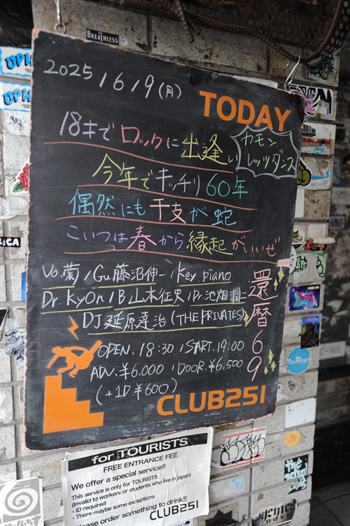 BREATHLESS
2025 / 6 / 9 (月)
TODAY
18才でロックに出逢い
カモン
レッツダンス
今年でキッチリ60年
偶然にも干支が蛇
こいつは春から縁起がいいぜ
Vo.菊 / Gu.藤沼伸一 / Key piano
Dr.KyOn / B.山本征史 / Dr.池畑潤二
DJ 延原達治 (THE PRIVATES)
還暦
69
OPEN. 18:30 / START. 19:00
ADV. ¥6.000 / DOOR. ¥6,500
(+1D ¥600)
CLUB251
for TOURISTS
FREE ENTRANCE FEE
We offer a special service!!
This service is only for TOURISTS
(invalid to workers or students who live in Japan)
・ID required
・There maybe some exceptions
Please order something to drink!!
CLUB251